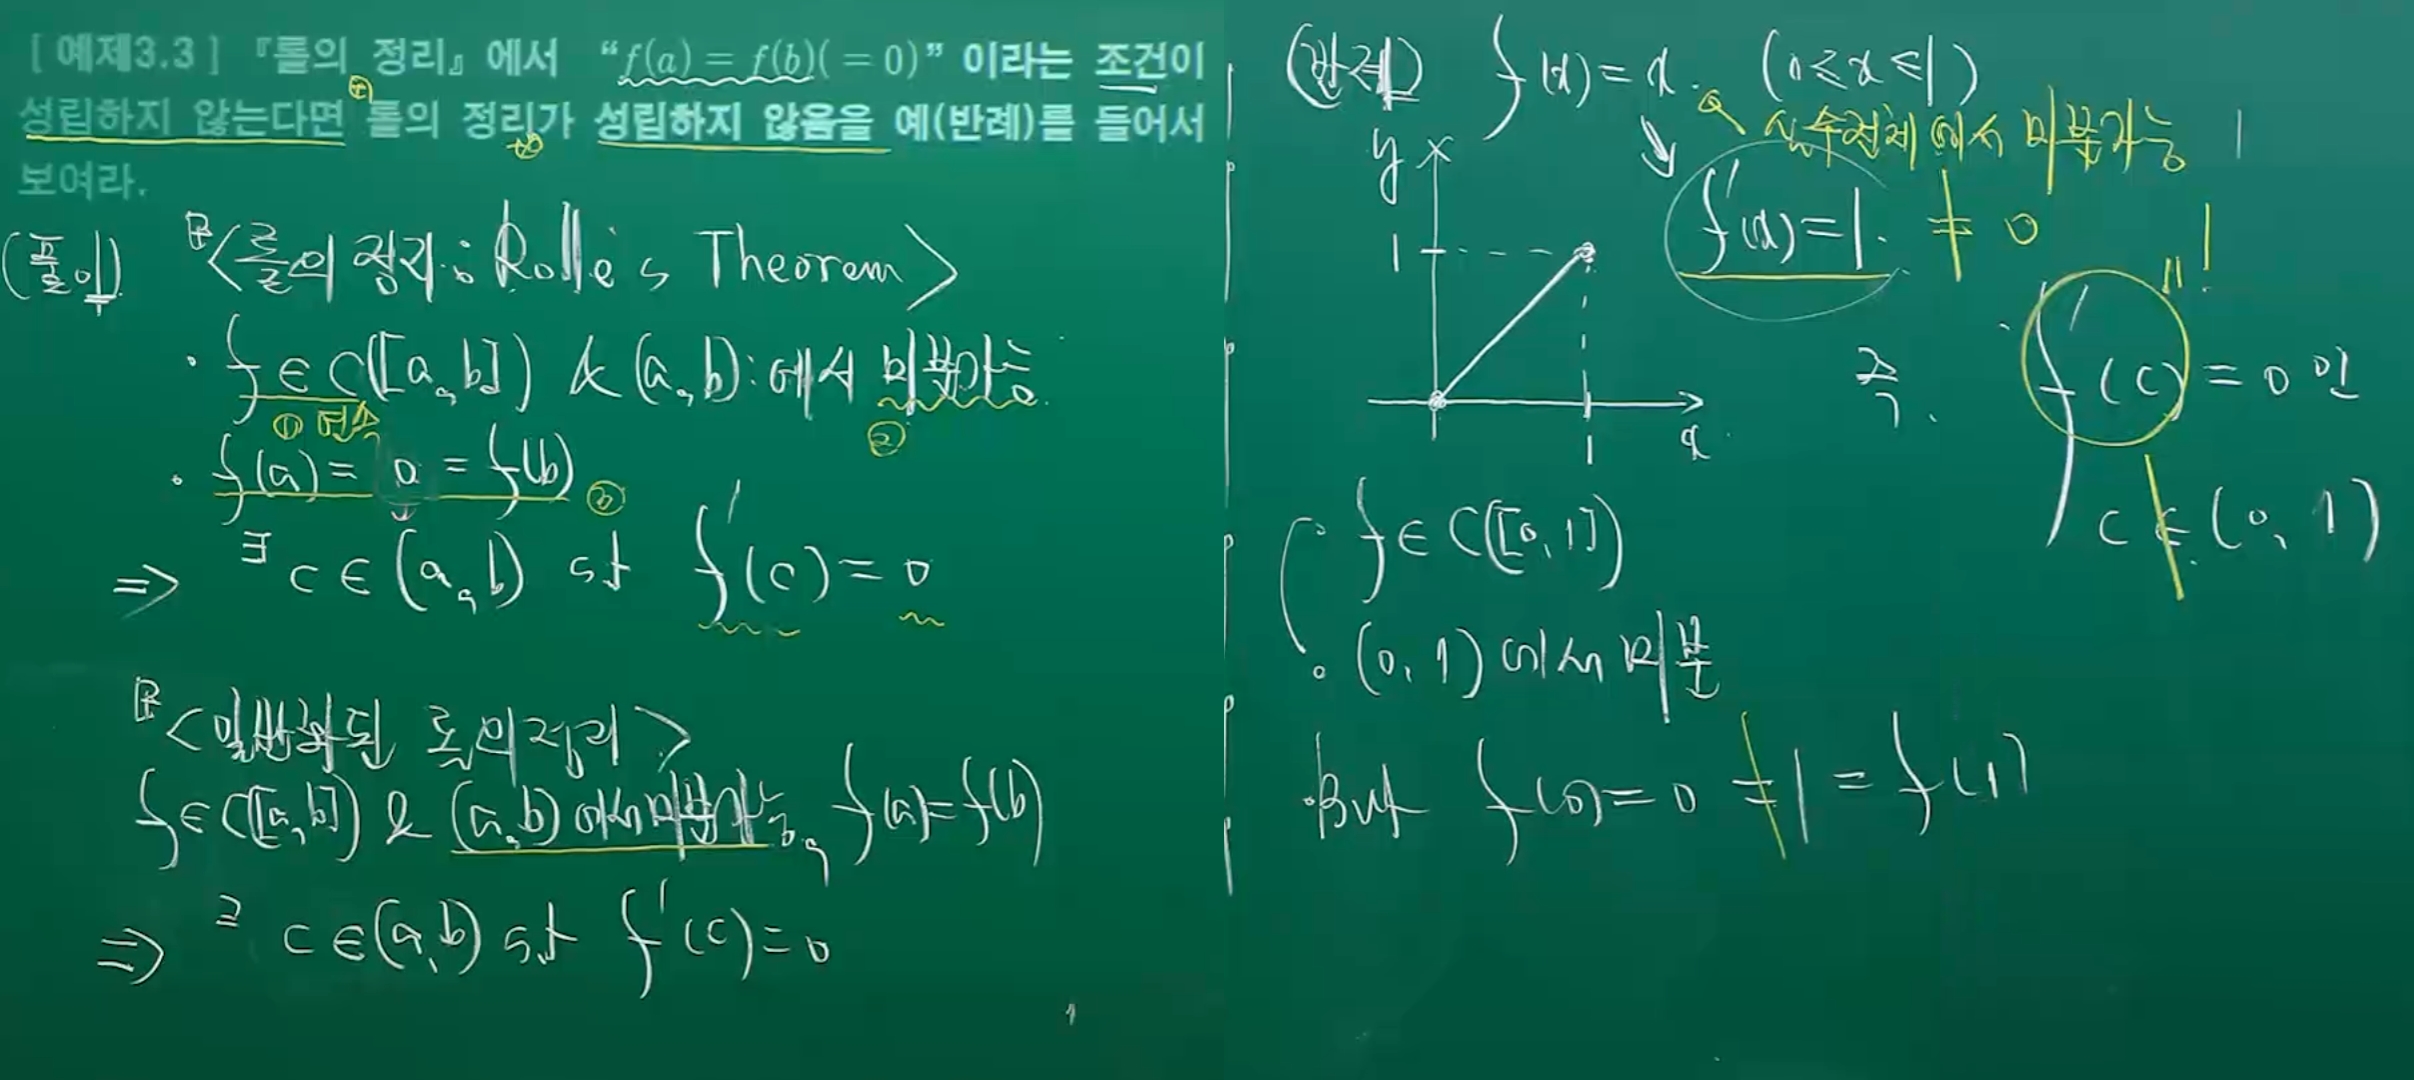 [예제3.3] 『롤의 정리』에서 “f(a) = f(b)(=0)” 이라는 조건이
성립하지 않는다면 롤의 정리가 성립하지 않음을 예(반례)를 들어서
보여라.
(풀이) <롤의 정리 : Rolle's Theorem>
· f ∈ C([a, b]) & (a, b) : 에서 미분가능.
① 연속 ②
· f(a) = 0 = f(b) ③
⇒ ∃ c ∈ (a, b) st f'(c) = 0
<일반화된 롤의 정리>
f ∈ C([a, b]) & (a, b) 에서 미분가능, f(a) = f(b)
⇒ ∃ c ∈ (a, b) s.t f'(c) = 0
(반례) f(x) = x. (0 ≤ x ≤ 1)
실수전체에서 미분가능
f'(x) = 1. ≠ 0
y
1
1 x
즉. f'(c) = 0 인
c ∉ (0, 1)
· f ∈ C([0, 1])
· (0, 1) 에서 미분
But f(0) = 0 ≠ 1 = f(1)